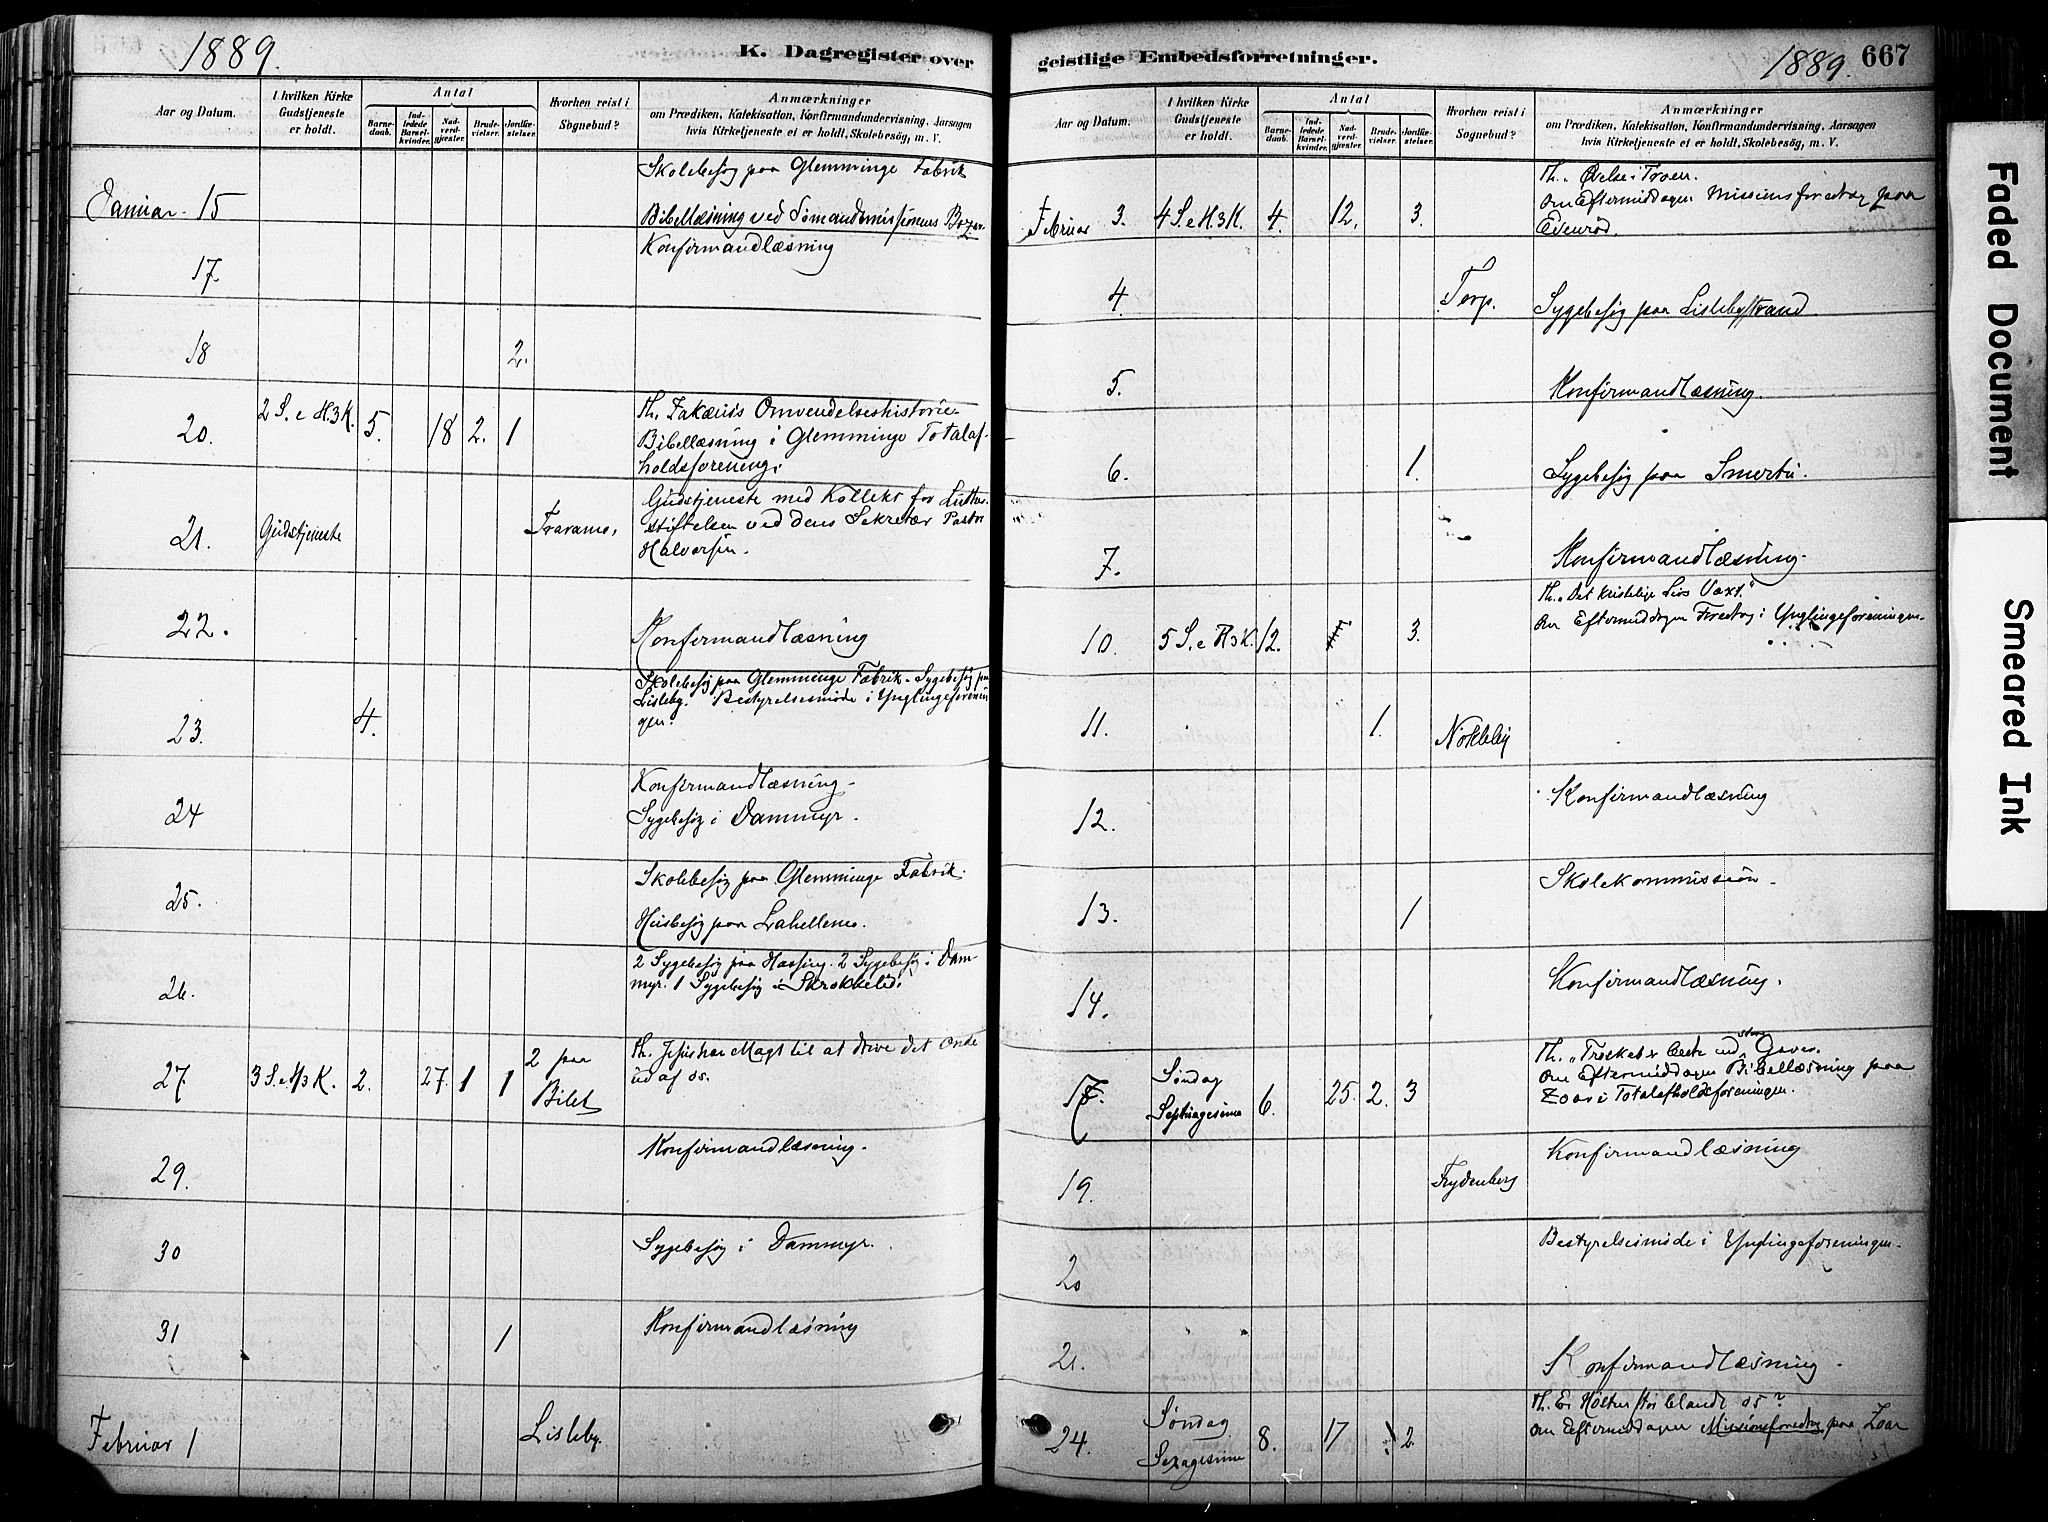 1889.
K. Dagregister over
Aar og Datum.
I hvilken Kirke Gudstjeneste er holdt.
Antal
Barnedaab.
Indledede Barselkvinder.
Nadverdgjester.
Brudevielser.
Jordfæstelser.
Hvorhen reist i Sognebud?
Anmærkninger
om Prædiken, Katekisation, Konfirmandundervisning, Aarsagen
hvis Kirketjeneste ei er holdt, Skolebesög, m. V.
Skolebesøg paa Glemminge Fabrik
Januar 15
Bibellæsning ved Sømandsmissionens Bazar
17. Konfirmandlæsning
18 2.
20. 2 S. e H3K. 5. 18 2. 1 Th. Zakæus's Omvendelseshistorie.
Bibellæsning i Glemminge Totalaf-
holdsforening.
21. Gudstjeneste Gudstjeneste med Kollekt for Luther-
stiftelsen ved dens Sekretær Pastor
Halvorsen.
22. Konfirmandlæsning
23. 4. Skolebesøg paa Glemminge Fabrik. Sygebesøg paa
Lisleby. Bestyrelsesmøde i Ynglingeforenin
gen.
24 Konfirmandlæsning.
Sygebesøg i Dammyr.
25. Skolebesøg paa Glemminge Fabrik.
Husbesøg paa Lahellene.
26. 2 Sygebesøg paa Hassing. 2 Sygebesøg i Dam-
myr. 1 Sygebesøg i
27. 3 S. e H3K. 2. 27. 1 1 2 paa Bilet Th. Jesus har Magt til at drive det Onde
ud af os.
29. Konfirmandlæsning.
30 Sygebesøg i Dammyr.
31 1 Konfirmandlæsning
Februar 1 Lisleby.
geistlige Embedsforretninger.
1889. 667
Aar og Datum.
I hvilken Kirke Gudstjeneste er holdt.
Antal
Barnedaab.
Indledede Barselkvinder.
Nadverdgjester.
Brudevielser.
Jordfæstelser.
Hvorhen reist i Sognebud?
Anmærkninger
om Prædiken, Katekisation, Konfirmandundervisning, Aarsagen
hvis Kirketjeneste ei er holdt, Skolebesög, m. V.
Februar 3. 4 S. e H3K. 4. 12. 3. Th. Øvelse i Troen.
Om Eftermiddagen Missionsforedrag paa
4. Torp. Sygebesøg paa Lislebystrand
5. Konfirmandlæsning.
6. 1. Sygebesøg paa Smertu.
7. Konfirmandlæsning.
10. 5 S. e H3K. 12. 3. Th. "Det kristelige Livs Væxt."
Om Eftermiddagen Foredrag i Ynglingeforeningen.
11. 1. Nøkleby
12. Konfirmandlæsning
13. 1 Skolekommission.
14. Konfirmandlæsning.
17. Søndag Septuagesima 6. 25. 2. 3 Th. "Troskab er bedre end store Gaver.
Om Eftermiddagen Bibellæsning paa
Zoar i Totalafholdsforeningen.
19. Frydenberg Konfirmandlæsning
20 Bestyrelsesmøde i Ynglingeforeningen.
21. Konfirmandlæsning.
24. Søndag Sexagesima 8. 17 2. Th. Er blandt os?
Om Eftermiddagen Missionsforedrag paa Zoar
Faded Document
Smeared Ink